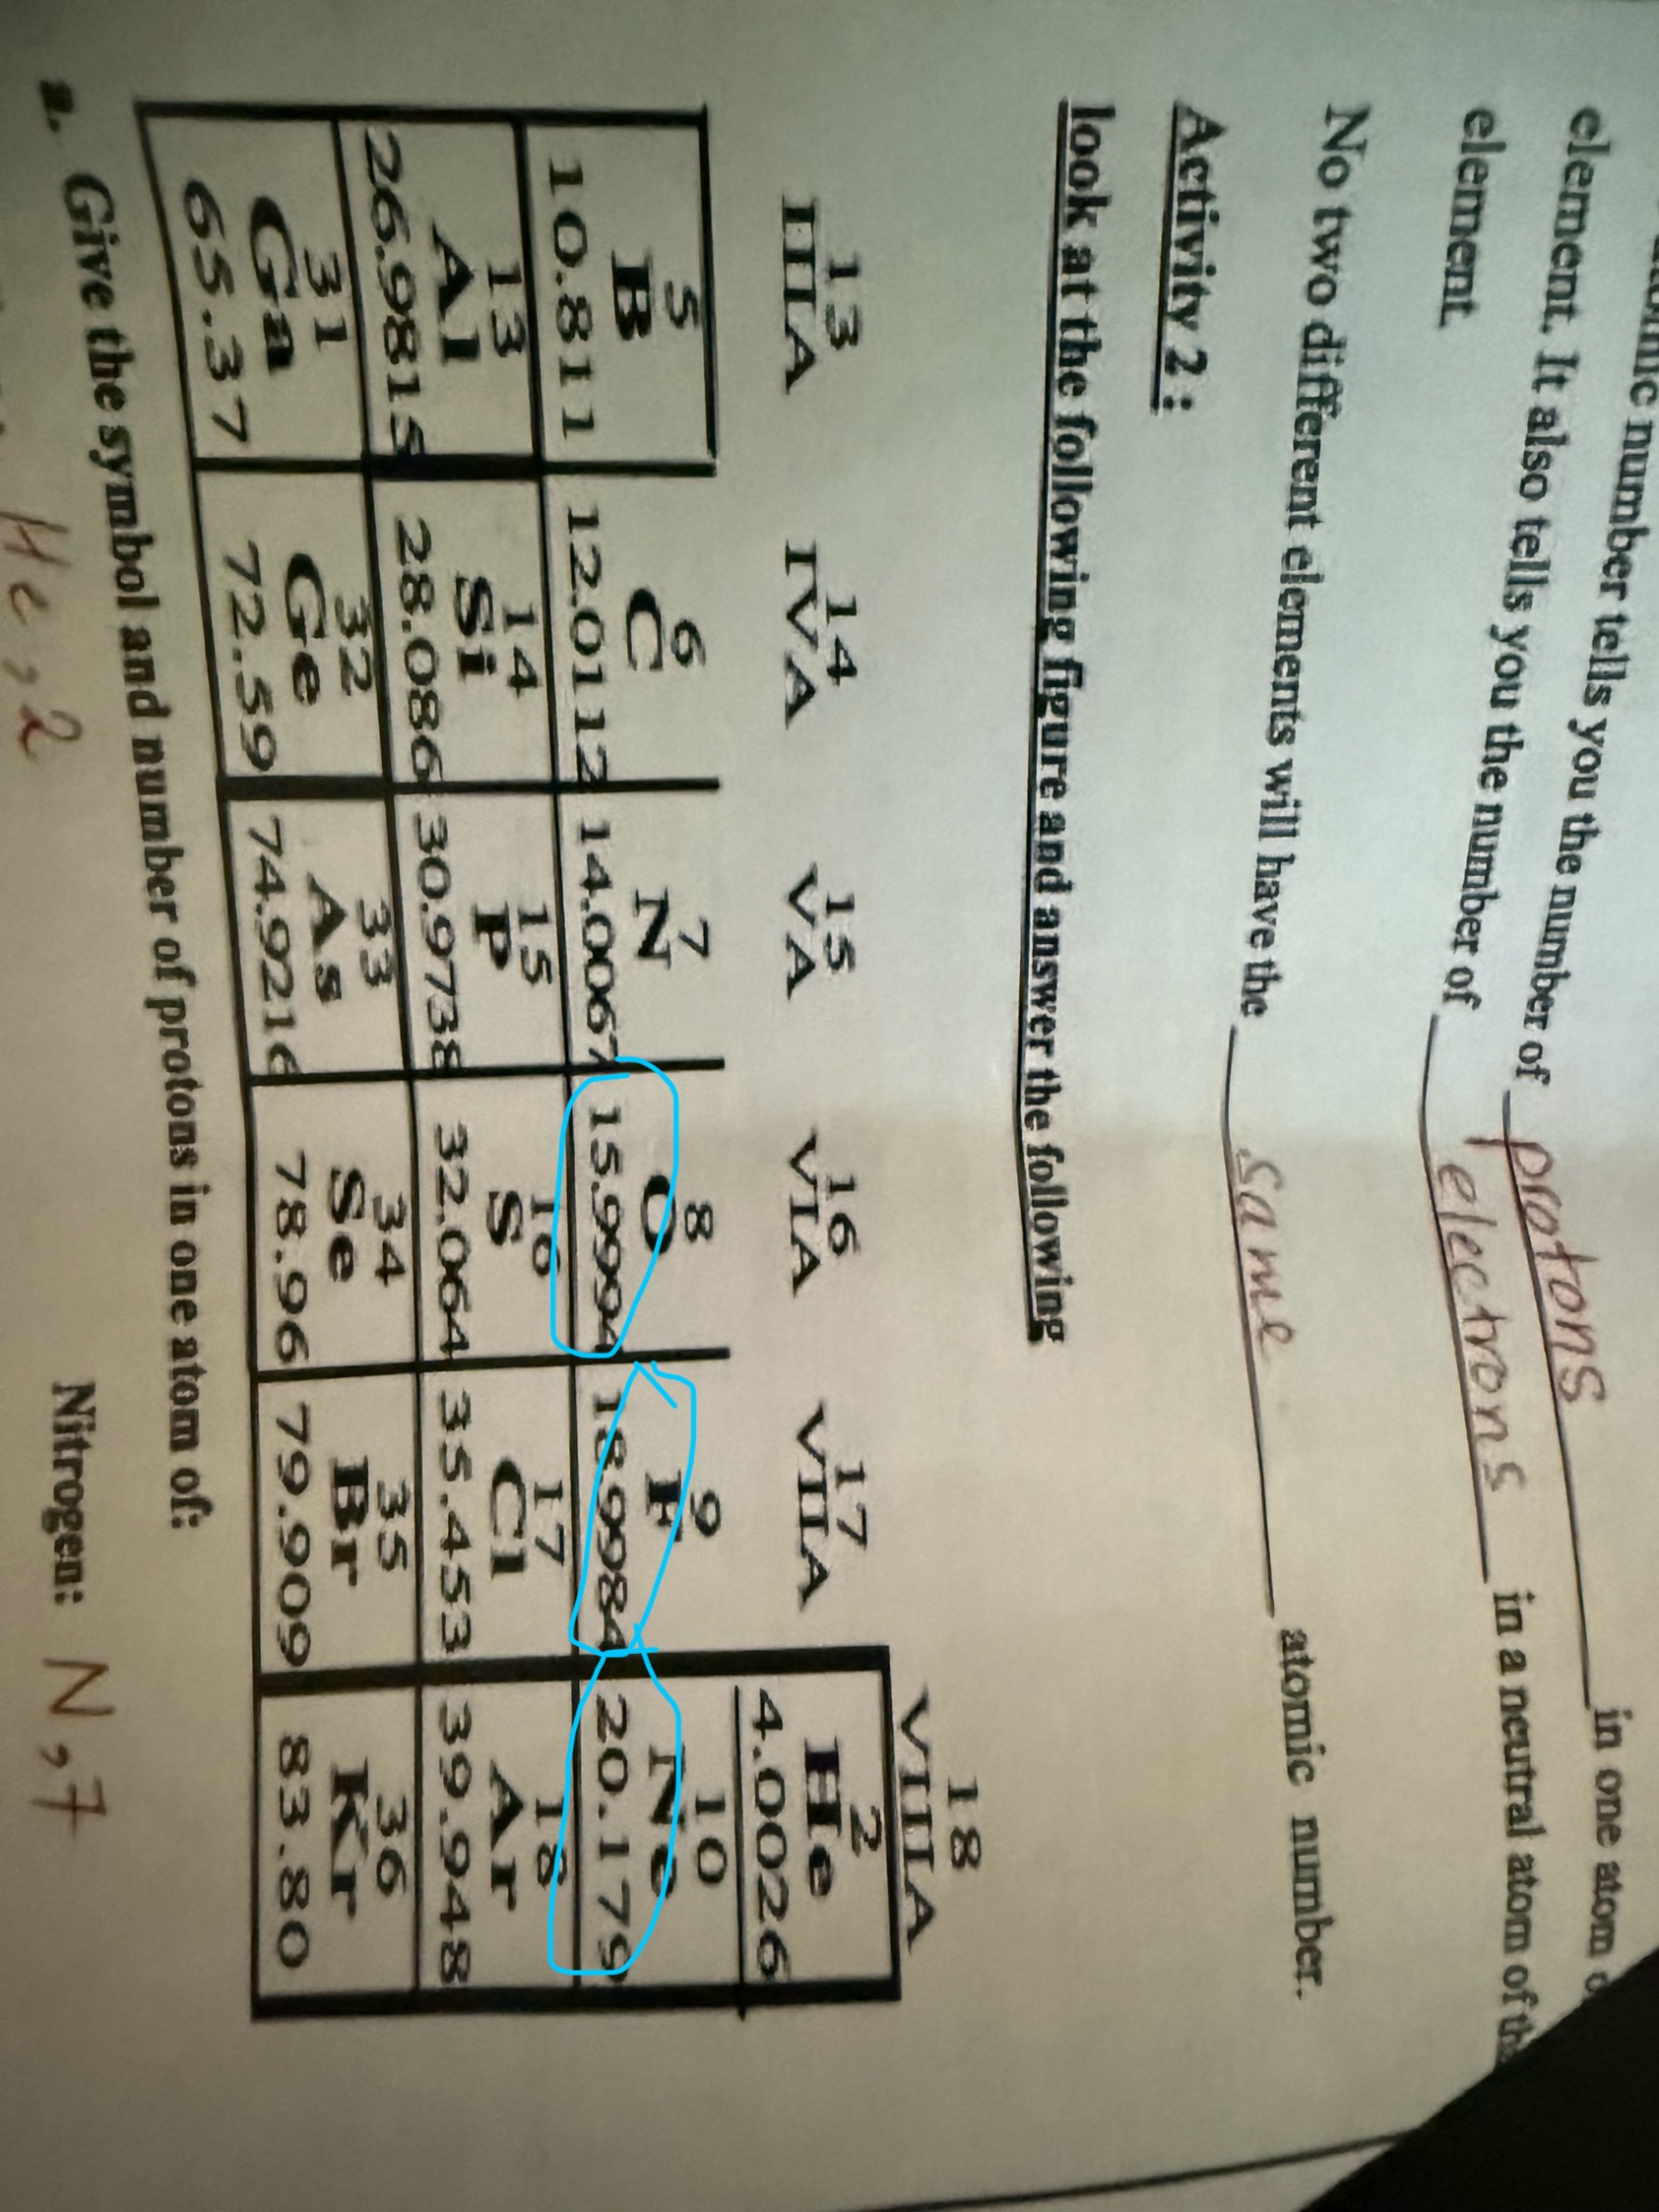 number tells you the number of protons in one atom
element. It also tells you the number of electrons in a neutral atom of
element
No two different elements will have the same atomic number.
Activity 2 :
look at the following figure and answer the following
18
VIIIA
13 14 15 16 17 2
IIIA IVA VA VIA VIIA He
4.0026
5 6 7 8 9 10
B C N O F Ne
10.811 12.01112 14.0067 15.9994 18.9984 20.179
13 14 15 16 17 18
Al Si P S Cl Ar
26.9815 28.086 30.9738 32.064 35.453 39.948
31 32 33 34 35 36
Ga Ge As Se Br Kr
65.37 72.59 74.9216 78.96 79.909 83.80
a. Give the symbol and number of protons in one atom of:
He , 2 Nitrogen: N , 7